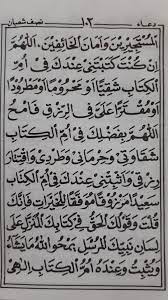 دعاء ١٠٢ نصف شعبان
الْمُسْتَجِيْرِيْنَ وَاَمَانَ الْخَائِفِيْنَ. اَللّٰهُمَّ
اِنْ كُنْتَ كَتَبْتَنِيْ عِنْدَكَ فِيْ اُمِّ
الْكِتَابِ شَقِيًّا اَوْ مَحْرُوْمًا اَوْ مَطْرُوْدًا
اَوْ مُقْتَرًّا عَلَيَّ فِى الرِّزْقِ فَامْحُ
اللّٰهُمَّ بِفَضْلِكَ فِيْ اُمِّ الْكِتَابِ
شَقَاوَتِيْ وَحِرْمَانِيْ وَطَرْدِيْ وَاِقْتَارَ
رِزْقِيْ وَاَثْبِتْنِيْ عِنْدَكَ فِيْ اُمِّ الْكِتَابِ
سَعِيْدًا مَرْزُوْقًا مُوَفَّقًا لِلْخَيْرَاتِ فَاِنَّكَ
قُلْتَ وَقَوْلُكَ الْحَقُّ فِيْ كِتَابِكَ الْمُنْزَلِ عَلٰى
لِسَانِ نَبِيِّكَ الْمُرْسَلِ يَمْحُو اللّٰهُ مَا يَشَآءُ
وَيُثْبِتُ وَعِنْدَهٗ اُمُّ الْكِتَابِ اِلٰهِيْ